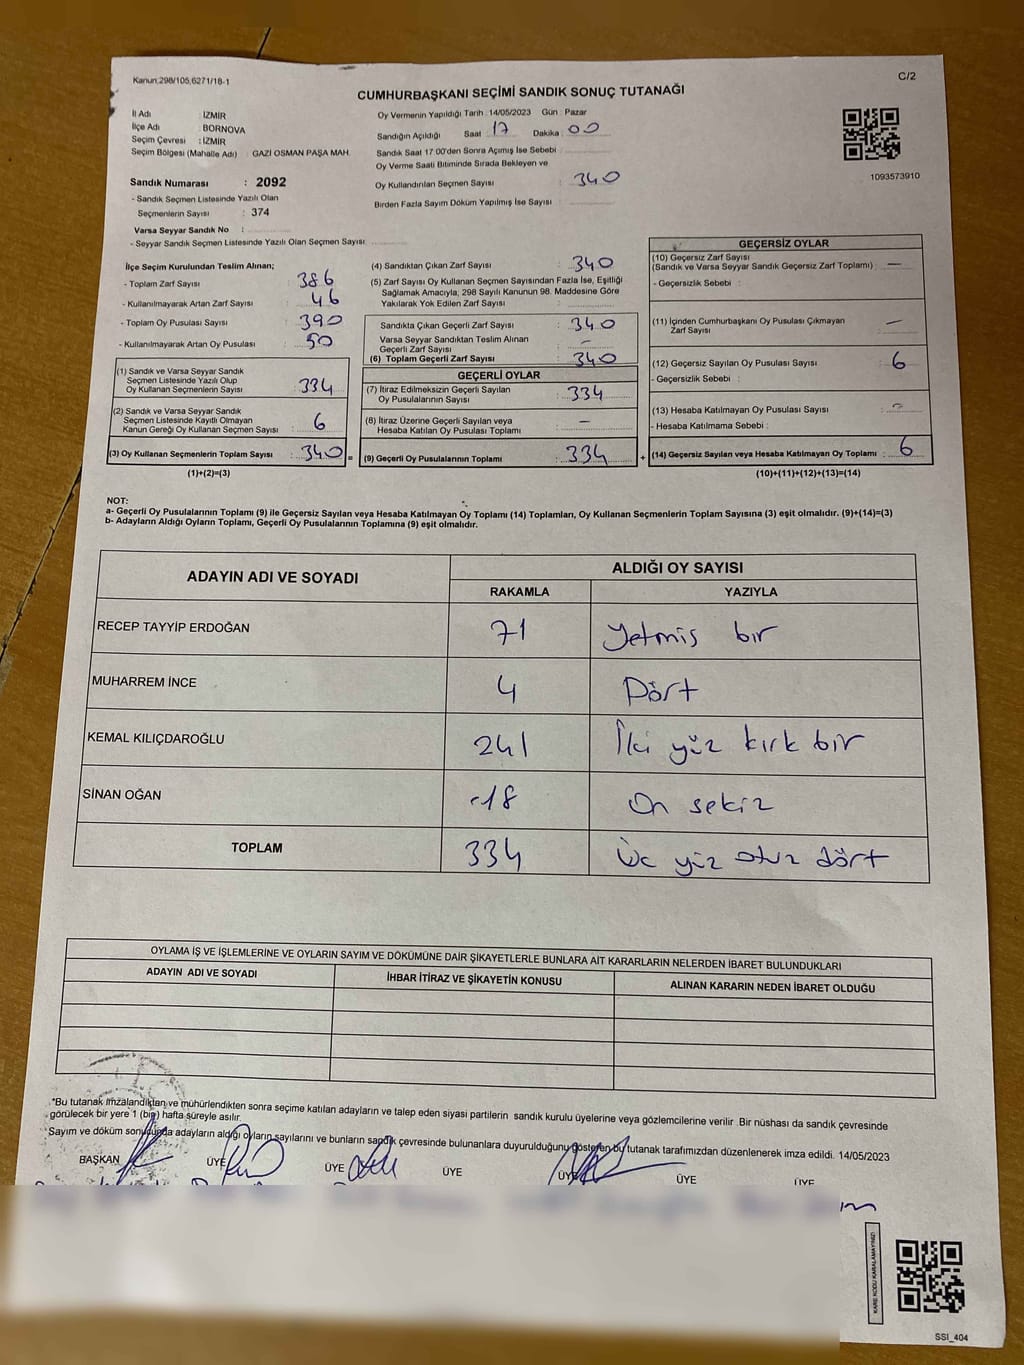 Kanun:298/105,6271/18-1
C/2
CUMHURBAŞKANI SEÇİMİ SANDIK SONUÇ TUTANAĞI
İl Adı : İZMİR
İlçe Adı : BORNOVA
Seçim Çevresi : İZMİR
Seçim Bölgesi (Mahalle Adı) : GAZİ OSMAN PAŞA MAH.
Sandık Numarası : 2092
- Sandık Seçmen Listesinde Yazılı Olan
Seçmenlerin Sayısı : 374
Varsa Seyyar Sandık No :
- Seyyar Sandık Seçmen Listesinde Yazılı Olan Seçmen Sayısı:
Oy Vermenin Yapıldığı Tarih : 14/05/2023 Gün : Pazar
Sandığın Açıldığı Saat : 17 Dakika : 00
Sandık Saat 17:00'den Sonra Açılmış İse Sebebi :
Oy Verme Saati Bitiminde Sırada Bekleyen ve
Oy Kullandırılan Seçmen Sayısı : 340
Birden Fazla Sayım Döküm Yapılmış İse Sayısı :
1093573910
İlçe Seçim Kurulundan Teslim Alınan;
- Toplam Zarf Sayısı : 386
- Kullanılmayarak Artan Zarf Sayısı : 46
- Toplam Oy Pusulası Sayısı : 390
- Kullanılmayarak Artan Oy Pusulası : 50
(1) Sandık ve Varsa Seyyar Sandık
Seçmen Listesinde Yazılı Olup
Oy Kullanan Seçmenlerin Sayısı : 334
(2) Sandık ve Varsa Seyyar Sandık
Seçmen Listesinde Kayıtlı Olmayan
Kanun Gereği Oy Kullanan Seçmen Sayısı : 6
(3) Oy Kullanan Seçmenlerin Toplam Sayısı : 340 =
(1)+(2)=(3)
(4) Sandıktan Çıkan Zarf Sayısı : 340
(5) Zarf Sayısı Oy Kullanan Seçmen Sayısından Fazla İse, Eşitliği
Sağlamak Amacıyla; 298 Sayılı Kanunun 98. Maddesine Göre
Yakılarak Yok Edilen Zarf Sayısı :
Sandıkta Çıkan Geçerli Zarf Sayısı : 340
Varsa Seyyar Sandıktan Teslim Alınan
Geçerli Zarf Sayısı : -
(6) Toplam Geçerli Zarf Sayısı : 340
GEÇERLİ OYLAR
(7) İtiraz Edilmeksizin Geçerli Sayılan
Oy Pusulalarının Sayısı : 334
(8) İtiraz Üzerine Geçerli Sayılan veya
Hesaba Katılan Oy Pusulası Toplamı : -
(9) Geçerli Oy Pusulalarının Toplamı : 334 +
GEÇERSİZ OYLAR
(10) Geçersiz Zarf Sayısı
(Sandık ve Varsa Seyyar Sandık Geçersiz Zarf Toplamı) : -
- Geçersizlik Sebebi :
(11) İçinden Cumhurbaşkanı Oy Pusulası Çıkmayan
Zarf Sayısı : -
(12) Geçersiz Sayılan Oy Pusulası Sayısı : 6
- Geçersizlik Sebebi :
(13) Hesaba Katılmayan Oy Pusulası Sayısı : -
- Hesaba Katılmama Sebebi :
(14) Geçersiz Sayılan veya Hesaba Katılmayan Oy Toplamı : 6
(10)+(11)+(12)+(13)=(14)
NOT:
a- Geçerli Oy Pusulalarının Toplamı (9) ile Geçersiz Sayılan veya Hesaba Katılmayan Oy Toplamı (14) Toplamları, Oy Kullanan Seçmenlerin Toplam Sayısına (3) eşit olmalıdır. (9)+(14)=(3)
b- Adayların Aldığı Oyların Toplamı, Geçerli Oy Pusulalarının Toplamına (9) eşit olmalıdır.
ADAYIN ADI VE SOYADI
ALDIĞI OY SAYISI
RAKAMLA YAZIYLA
RECEP TAYYİP ERDOĞAN 71 Yetmiş bir
MUHARREM İNCE 4 Dört
KEMAL KILIÇDAROĞLU 241 İki yüz kırk bir
SİNAN OĞAN 18 On sekiz
TOPLAM 334 Üç yüz otuz dört
OYLAMA İŞ VE İŞLEMLERİNE VE OYLARIN SAYIM VE DÖKÜMÜNE DAİR ŞİKAYETLERLE BUNLARA AİT KARARLARIN NELERDEN İBARET BULUNDUKLARI
ADAYIN ADI VE SOYADI İHBAR İTİRAZ VE ŞİKAYETİN KONUSU ALINAN KARARIN NEDEN İBARET OLDUĞU
*Bu tutanak imzalandıktan ve mühürlendikten sonra seçime katılan adayların ve talep eden siyasi partilerin sandık kurulu üyelerine veya gözlemcilerine verilir. Bir nüshası da sandık çevresinde
görülecek bir yere 1 (bir) hafta süreyle asılır.
Sayım ve döküm sonucunda adayların aldığı oyların sayılarını ve bunların sandık çevresinde bulunanlara duyurulduğunu gösteren bu tutanak tarafımızdan düzenlenerek imza edildi. 14/05/2023
BAŞKAN ÜYE ÜYE ÜYE ÜYE ÜYE ÜYE
KARE KODU KARALAMAYINIZ!
SSİ_404